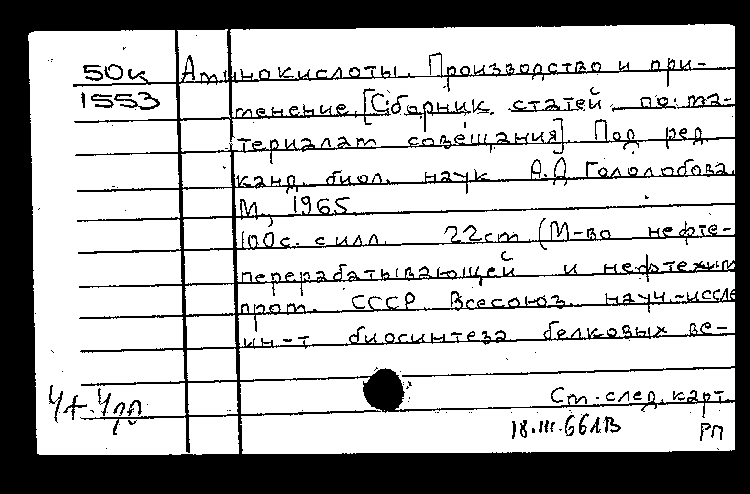 50к
1553
Аминокислоты. Производство и при-
менение. [Сборник статей по ма-
териалам совещания]. Под ред.
канд. биол. наук А.Д Гололобова.
М., 1965.
100с. с илл. 22см (М-во нефте-
перерабатывающей и нефтехим.
пром. СССР Всесоюз. науч.-иссле
ин-т биосинтеза белковых ве-
Ст. след. карт.
18.III.66
РП